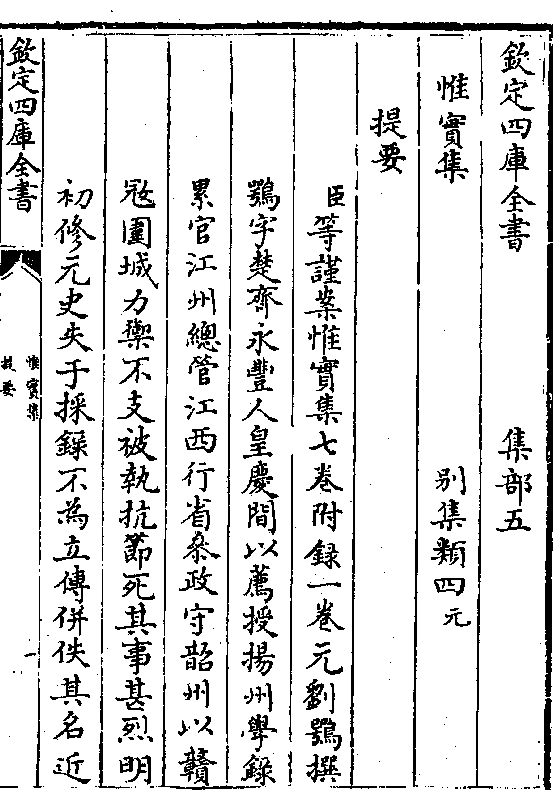 欽定四庫全書　　　集部五
惟實集　　　別集類四元
提要
臣等謹案惟實集七卷附録一卷元劉鶚撰
鶚字楚齊永豐人皇慶間以薦授揚州學錄
累官江州總管江西行省叅政守韶州以贛
宼圍城力禦不支被執抗節死其事甚烈明
初修元史失于採錄不為立傳併佚其名近
欽定四庫全書
惟實集
提要
一